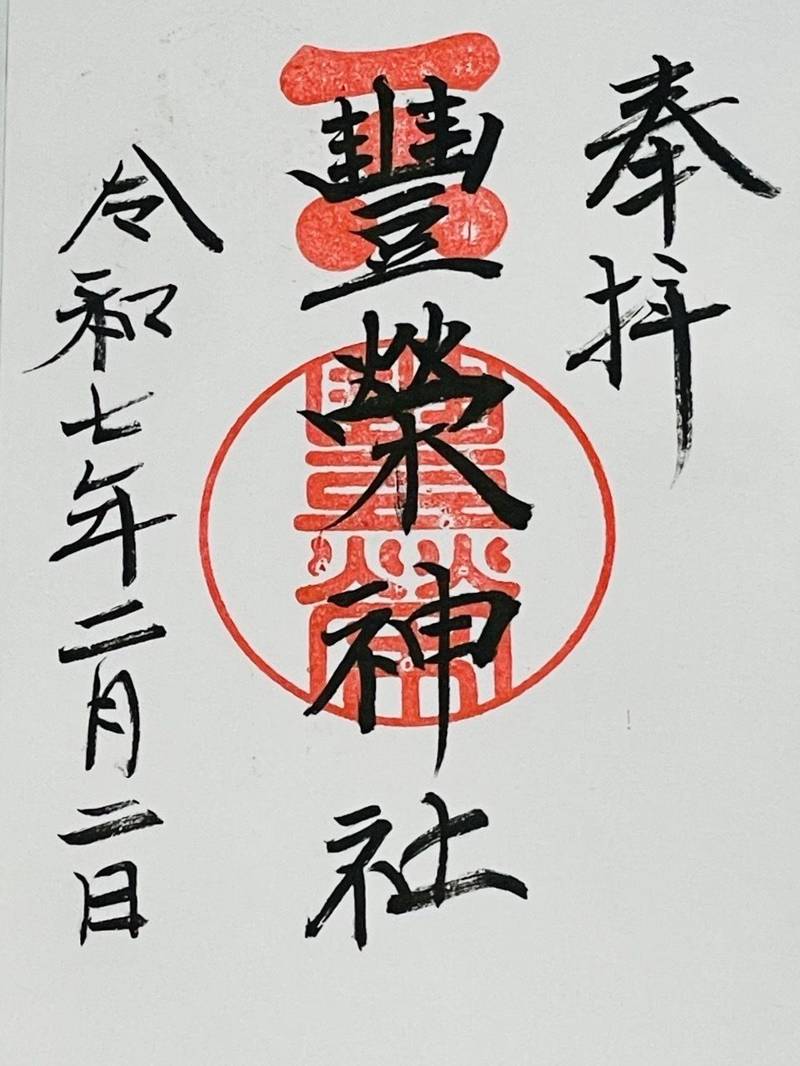 奉拝
豐榮神社
豐榮
令和七年二月二日